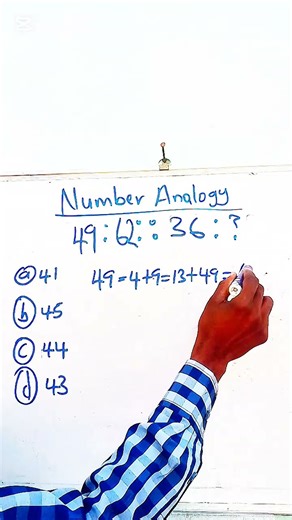 Number Analogy
49:62::36:?
(a) 41 49=4+9=13+49=
(b) 45
(c) 44
(d) 43